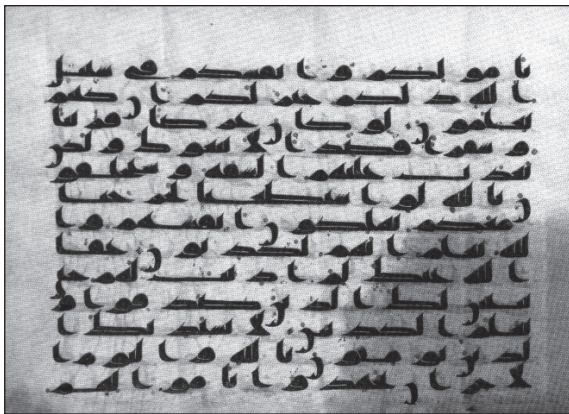 باموالكم وانفسكم في سبيل
الله ذلكم خير لكم ان كنتم
تعلمون لو كان عرضا قريبا
وسفرا قاصدا لاتبعوك ولكن
بعدت عليهم الشقة وسيحلفون
بالله لو استطعنا لخرجنا
معكم يهلكون انفسهم وا
لله يعلم انهم لكذبون عفا
الله عنك لم اذنت لهم حتى
يتبين لك الذين صدقوا و
تعلم الكذبين لا يستذنك ا
لذين يومنون بالله واليوم ا
لاخر ان يجهدوا باموالهم